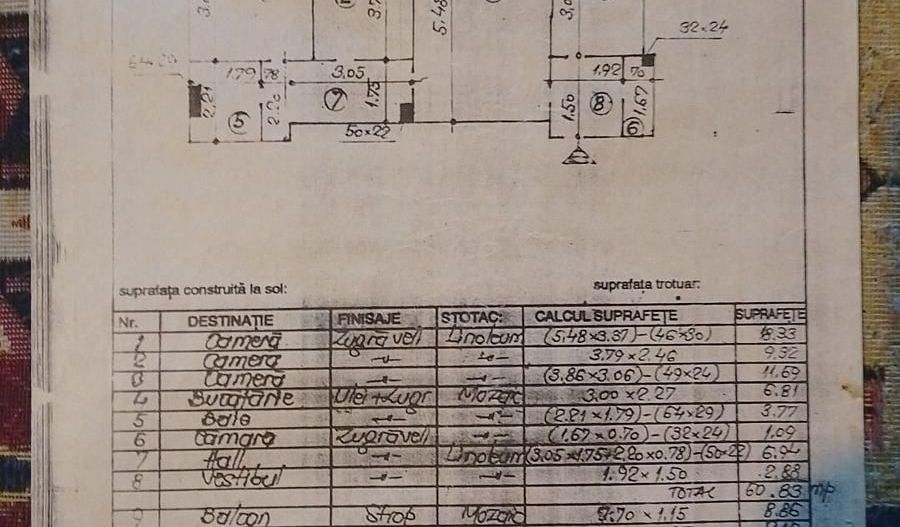 5.48
32×24
1.79 78
3.05
1.92 70
2.21
2.20
7
1.75
1.50
8
1.67
5
6
50×22
suprafața construită la sol:
suprafața trotuar:
Nr. DESTINAȚIE FINISAJE STOTAC: CALCUL SUPRAFEȚE SUPRAFEȚE
1 Cameră Zugrăveli Linoleum (5.48×3.37)-(46×30)
2 Cameră -〃- -〃- 3.79×2.46 9.32
3 Cameră -〃- -〃- (3.86×3.06)-(49×24) 11.69
4 Bucătărie Ulei+Zugr Mozaic 3.00×2.27 6.81
5 Baie -〃- -〃- (2.21×1.79)-(64×29) 3.77
6 Cămară Zugrăveli -〃- (1.67×0.70)-(32×24) 1.09
7 Hall -〃- Linoleum (3.05×1.75+2.20×0.78)-(50×22)
8 Vestibul -〃- -〃- 1.92×1.50 2.88
TOTAL 60.83 mp
9 Balcon Strop Mozaic 7.70×1.15 8.86